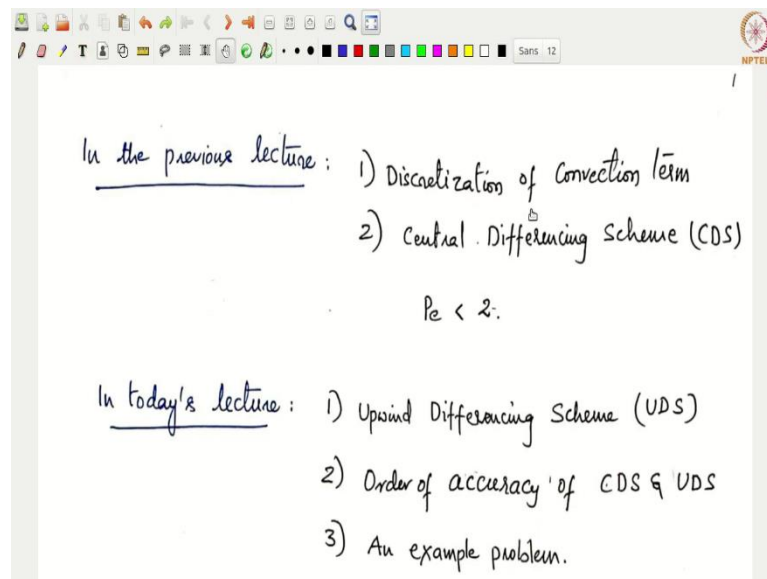 Sans 12
NPTEL
1
In the previous lecture : 1) Discretization of Convection Term
2) Central Differencing Scheme (CDS)
Pe < 2.
In today's lecture : 1) Upwind Differencing Scheme (UDS)
2) Order of accuracy of CDS & UDS
3) An example problem.